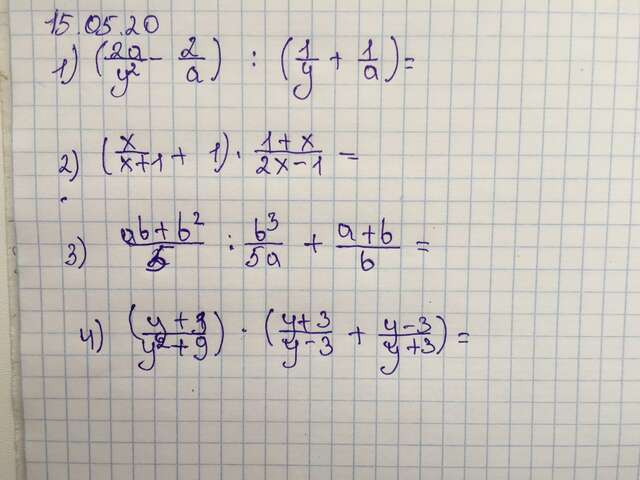 15.05.20
1) (2a/y² - 2/a) : (1/y + 1/a) =
2) (x/x+1 + 1) · 1+x/2x-1 =
3) ab+b²/5 : b³/5a + a+b/b =
4) (y+3/y²+9) · (y+3/y-3 + y-3/y+3) =